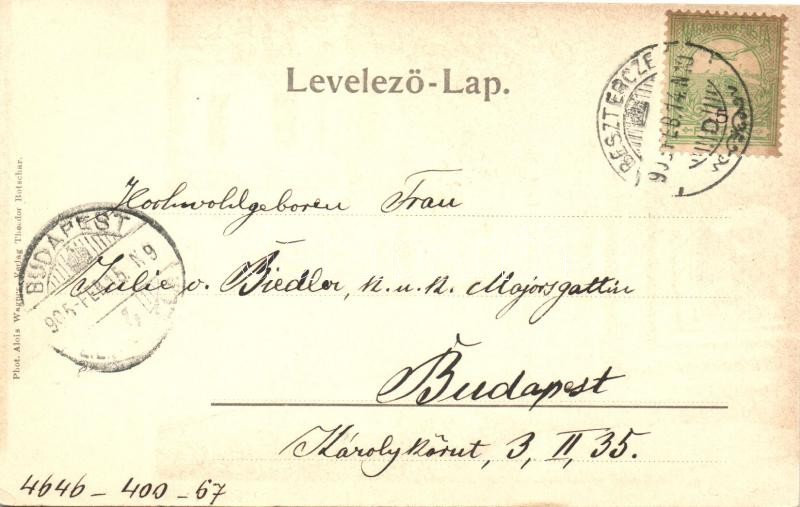 Levelező-Lap.
BESZTERCZE
905 FEB. 14. N
5
Hochwohlgeboren Frau
BUDAPEST
905 FEB 15. N 9
Julie v. Biedler, k. u. k. Majorsgattin
Budapest
Károlykörut, 3, II, 35.
Phot. Alois Wagner, Verlag Theodor Botschar.
4646 - 400 - 67